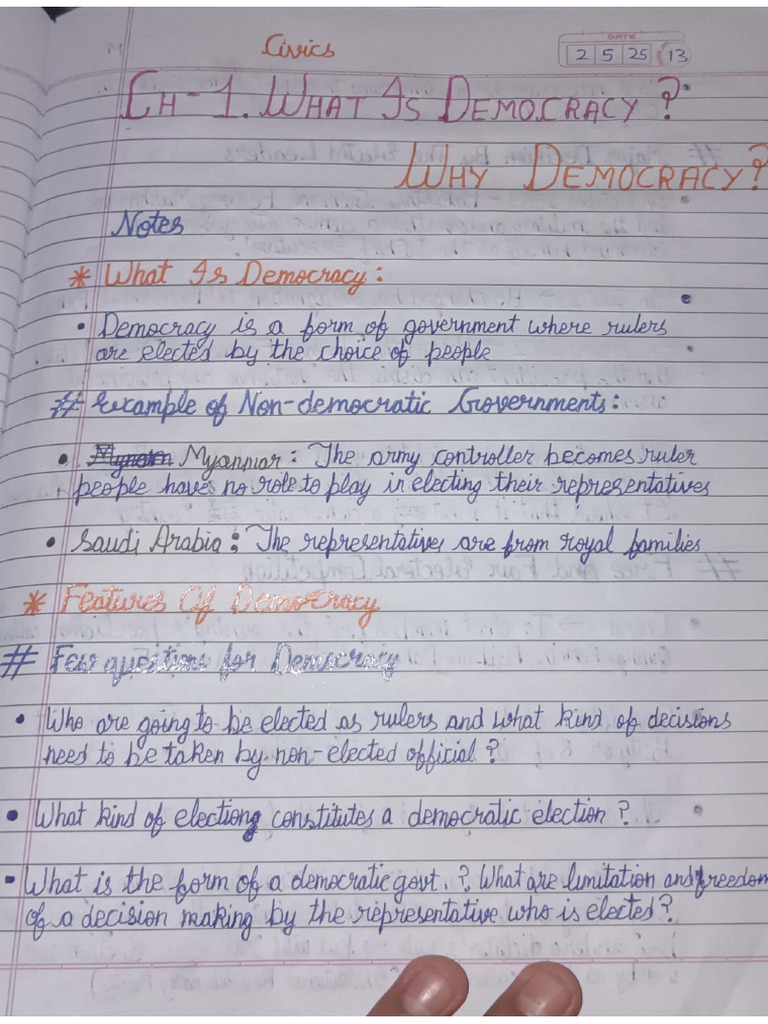 Civics
DATE
2 5 25 13
CH-1. WHAT IS DEMOCRACY?
WHY DEMOCRACY?
Notes
* What Is Democracy:
• Democracy is a form of government where rulers
are elected by the choice of people
# Example of Non-democratic Governments:
• Myanmar: The army controller becomes ruler
people have no role to play in electing their representatives
• Saudi Arabia: The representatives are from royal families
* Features Of Democracy
# Few questions for Democracy
• Who are going to be elected as rulers and what kind of decisions
need to be taken by non-elected official?
• What kind of elections constitutes a democratic election?
• What is the form of a democratic govt.? What are limitation and freedom
of a decision making by the representative who is elected?